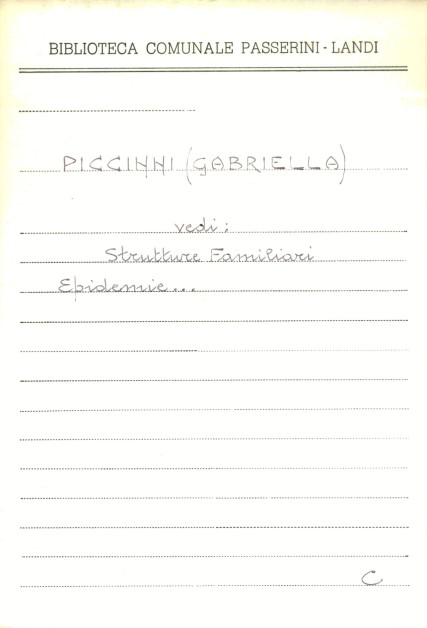 BIBLIOTECA COMUNALE PASSERINI - LANDI
PICCINNI (GABRIELLA)
vedi:
Strutture Familiari
Epidemie...
C